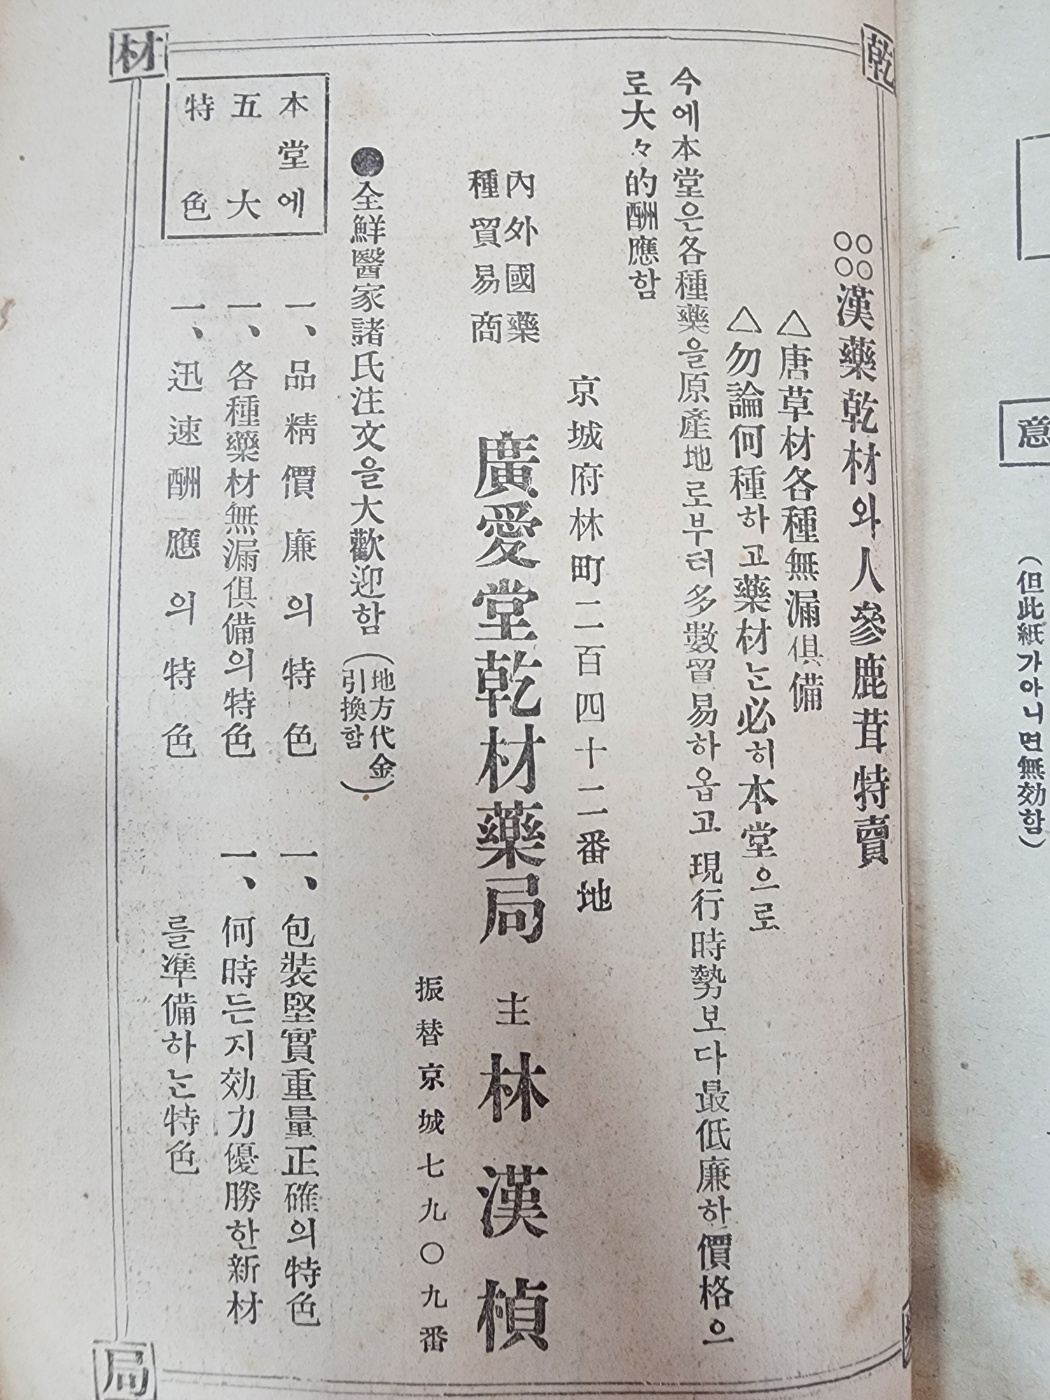 乾
材
局
○○○○漢藥乾材와人參鹿茸特賣
△唐草材各種無漏俱備
△勿論何種하고藥材는必히本堂으로
今에本堂은各種藥을原產地로부터多數貿易하옵고現行時勢보다最低廉하價格으
로大々的酬應함
京城府林町二百四十二番地
內外國藥
種貿易商
廣愛堂乾材藥局 主 林漢楨
振替京城七九〇九番
●全鮮醫家諸氏注文을大歡迎함(地方代金
引換함)
本堂에
五大
特色
一、品精價廉의特色
一、各種藥材無漏俱備의特色
一、迅速酬應의特色
一、包裝堅實重量正確의特色
一、何時든지効力優勝한新材
를準備하는特色
意
(但此紙가아니면無効함)